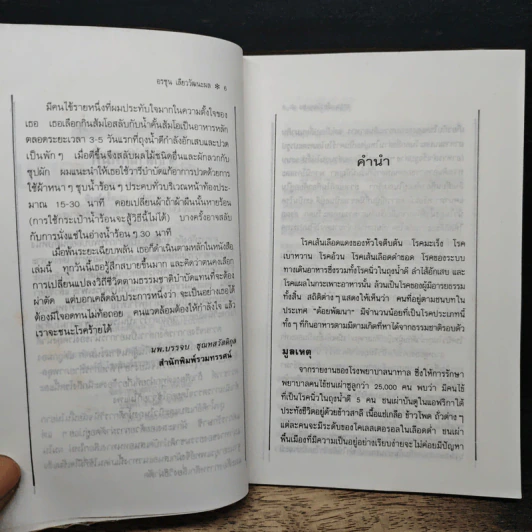 อรชุน เลียววัฒนะผล ❋ 6
มีคนไข้รายหนึ่งที่ผมประทับใจมากในความตั้งใจของ
เธอ เธอเลือกกินส้มโอสลับกับน้ำคั้นส้มโอเป็นอาหารหลัก
ตลอดระยะเวลา 3-5 วันแรกที่ถุงน้ำดีกำลังอักเสบและปวด
เป็นพักๆ เมื่อดีขึ้นจึงสลับผลไม้ชนิดอื่นและผักลวกกับ
ซุปผัก ผมแนะนำให้เธอใช้วารีบำบัดแก้อาการปวดด้วยการ
ใช้ผ้าหนาๆ ชุบน้ำร้อนๆ ประคบทั่วบริเวณหน้าท้องประ-
มาณ 15-30 นาที คอยเปลี่ยนผ้าถ้าผ้าผืนนั้นหายร้อน
(การใช้กระเป๋าน้ำร้อนจะสู้วิธีนี้ไม่ได้) บางครั้งอาจสลับ
การนั่งแช่ในอ่างน้ำร้อนๆ 30 นาที
เมื่อพ้นระยะเฉียบพลัน เธอก็ดำเนินตามหลักในหนังสือ
เล่มนี้ ทุกวันนี้เธอรู้สึกสบายขึ้นมาก และคิดว่าตนคงเลือก
การเปลี่ยนแปลงวิถีชีวิตตามธรรมชาติบำบัดแทนที่จะต้อง
ผ่าตัด แต่บอกเคล็ดลับประการหนึ่งว่า จะเป็นอย่างเธอได้
ต้องมีใจอดทนไม่ท้อถอย คนแวดล้อมต้องให้กำลังใจ แล้ว
เราจะชนะโรคร้ายได้
นพ.บรรจบ ชุณหสวัสดิกุล
สำนักพิมพ์รวมทรรศน์
คำนำ
โรคเส้นเลือดแดงของหัวใจตีบตัน โรคมะเร็ง โรค
เบาหวาน โรคอ้วน โรคเส้นเลือดดำขอด โรคของระบบ
ทางเดินอาหารซึ่งรวมทั้งโรคนิ่วในถุงน้ำดี ลำไส้อักเสบ และ
โรคแผลในกระเพาะอาหารนั้น ล้วนเป็นโรคของผู้มีอารยธรรม
ทั้งสิ้น สถิติต่างๆ แสดงให้เห็นว่า คนที่อยู่ตามชนบทใน
ประเทศ “ด้อยพัฒนา” มีจำนวนน้อยที่เป็นโรคประเภทนี้
ทั้งๆ ที่กินอาหารตามมีตามเกิดที่หาได้จากธรรมชาติรอบตัว
มูลเหตุ
จากรายงานของโรงพยาบาลนาทาล ซึ่งให้การรักษา
พยาบาลคนไข้ชนเผ่าซูลูกว่า 25,000 คน พบว่า มีคนไข้
ที่เป็นโรคนิ่วในถุงน้ำดี 5 คน ชนเผ่าบันตูในแอฟริกาใต้
ประทังชีวิตอยู่ด้วยข้าวสาลี เนื้อแช่เกลือ ข้าวโพด ถั่วต่างๆ
แต่ละคนจะมีระดับของโคเลสเตอรอลในเลือดต่ำ ชนเผ่า
พื้นเมืองที่มีความเป็นอยู่อย่างเรียบง่ายจะไม่ค่อยมีปัญหา